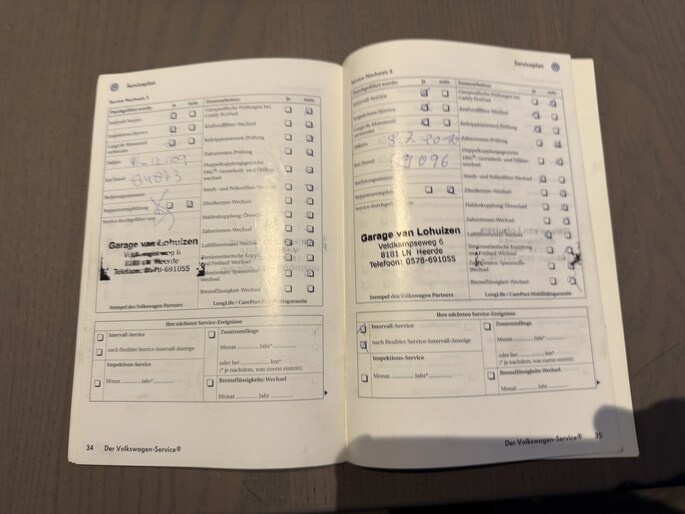 Serviceplan
Service-Nachweis 5
Durchgeführt wurde: ja nein
Intervall-Service
Inspektions-Service
LongLife Motorenöl verwendet
Datum
Km-Stand 84873
Rechnungsnummer
Reparaturempfehlung
Service durchgeführt von:
Garage van Lohuizen
Veldkampseweg 6
8181 LN Heerde
Telefoon: 0578-691055
Stempel des Volkswagen Partners
Zusatzarbeiten: ja nein
Caddy EcoFuel
Kraftstofffilter-Wechsel
Keilrippenriemen-Prüfung
Zahnriemen-Prüfung
Doppelkupplungsgetriebe
DSG®: Getriebeöl- und Ölfilter-
Wechsel
Staub- und Pollenfilter-Wechsel
Zündkerzen-Wechsel
Zahnriemen-Wechsel
Luftfiltereinsatz-Wechsel
Bremsflüssigkeits-Wechsel
LongLife / CarePort-Mobilitätsgarantie
Ihre nächsten Service-Ereignisse
Intervall-Service
nach flexibler Service-Intervall-Anzeige
Inspektions-Service
Monat Jahr*
Zusatzumfänge
Monat Jahr*
oder bei km*
(* je nachdem, was zuerst eintritt)
Bremsflüssigkeits-Wechsel
Monat Jahr
34 Der Volkswagen-Service®
Serviceplan
Service-Nachweis 6
Durchgeführt wurde: ja nein
Intervall-Service
Inspektions-Service
LongLife Motorenöl verwendet
Datum
Km-Stand
Rechnungsnummer
Reparaturempfehlung
Garage van Lohuizen
Veldkampseweg 6
8181 LN Heerde
Telefoon: 0578-691055
Stempel des Volkswagen Partners
Zusatzarbeiten: ja nein
Caddy EcoFuel
Kraftstofffilter-Wechsel
Keilrippenriemen-Prüfung
Zahnriemen-Prüfung
Doppelkupplungsgetriebe
DSG®: Getriebeöl- und Ölfilter-
Wechsel
Staub- und Pollenfilter-Wechsel
Zündkerzen-Wechsel
Haldexkupplung-Ölwechsel
Zahnriemen-Wechsel
Bremsflüssigkeits-Wechsel
LongLife / CarePort-Mobilitätsgarantie
Ihre nächsten Service-Ereignisse
Intervall-Service
nach flexibler Service-Intervall-Anzeige
Inspektions-Service
Monat Jahr*
Zusatzumfänge
Monat Jahr*
oder bei km*
(* je nachdem, was zuerst eintritt)
Bremsflüssigkeits-Wechsel
Monat Jahr
Der Volkswagen-Service® 35